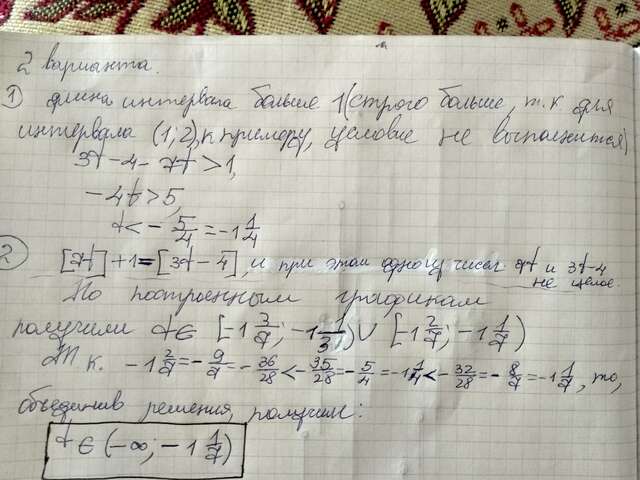 2 варианта.
① длина интервала больше 1 (строго больше, т.к. для
интервала (1; 2), к примеру, условие не выполнится)
3t - 4 - 7t > 1,
-4t > 5,
t < - 5/4 = -1 1/4
② [7t] + 1 = [3t - 4], и при этом одно из чисел 7t и 3t-4
не целое.
По построенным графикам
получили t ∈ [-1 3/7; -1 1/3) ∪ [-1 2/7; -1 1/7)
Т. к. -1 2/7 = - 9/7 = - 36/28 < - 35/28 = - 5/4 = -1 1/4 < - 32/28 = - 8/7 = -1 1/7, то,
объединив решения, получим:
t ∈ (-∞; -1 1/7)